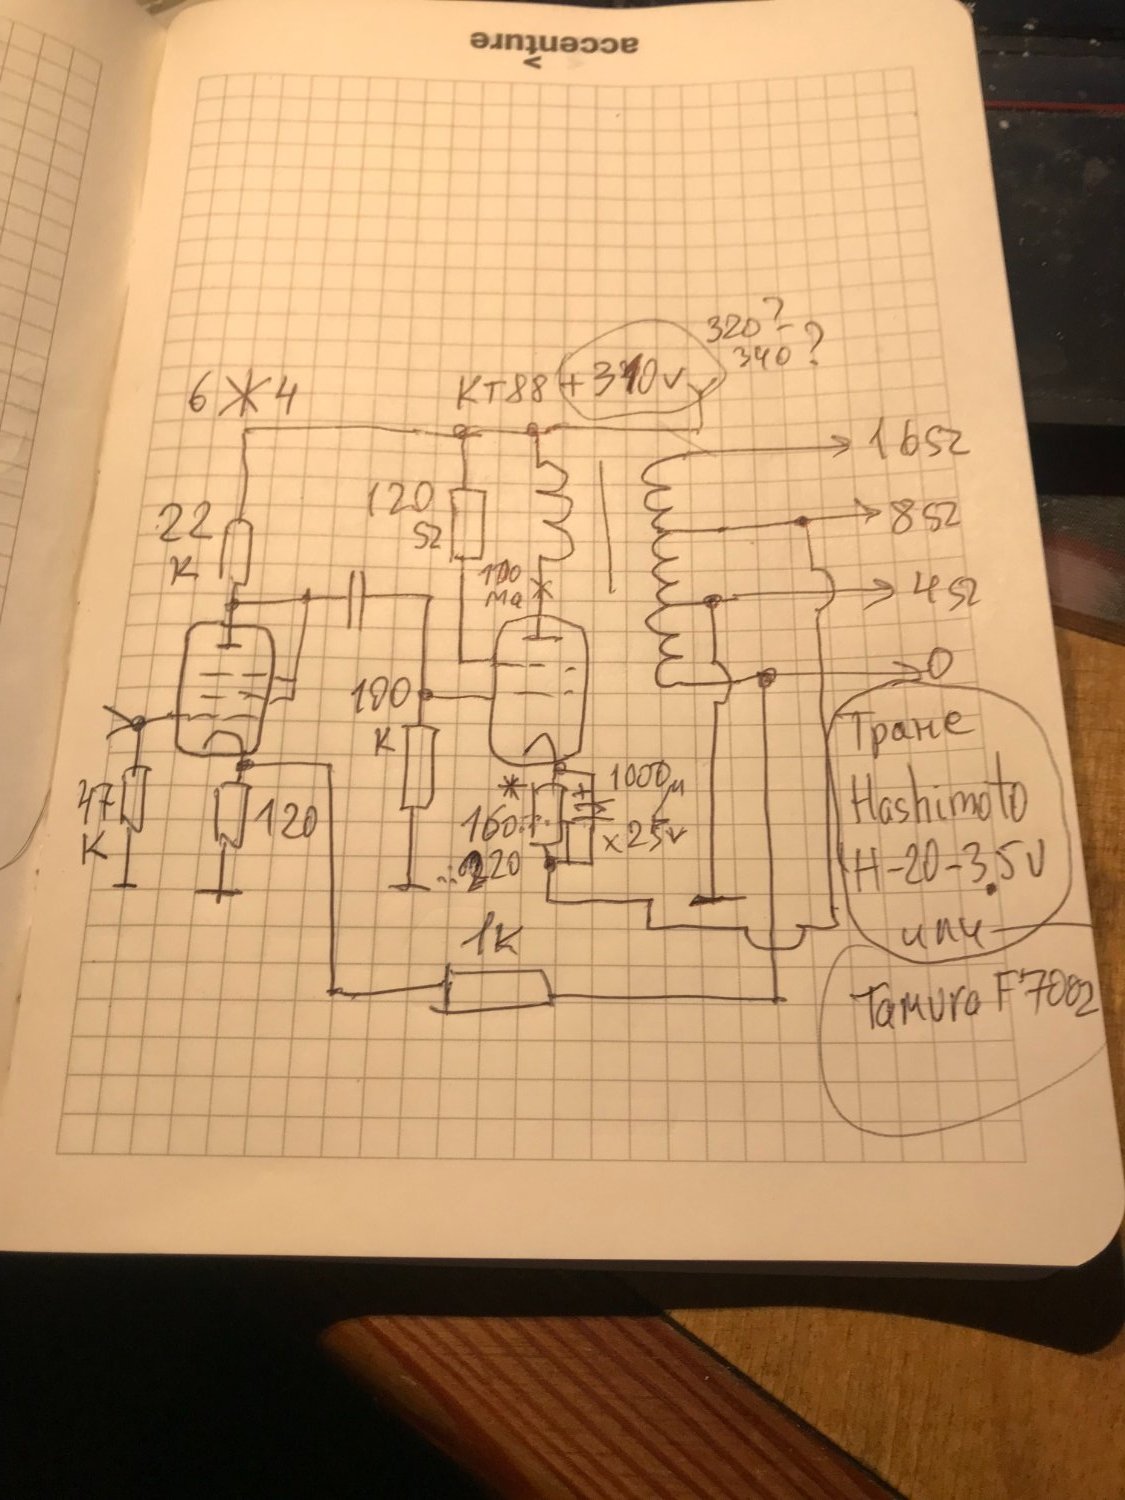 accenture
320?-
340?
6Ж4
КТ88
+310v
16Ω
22
К
120
Ω
8Ω
100
ма
4Ω
0
100
К
47
К
120
*
160..
..220
+
1000μ
x25v
Транс
Hashimoto
H-20-3.5U
или
1К
Tamura F7002